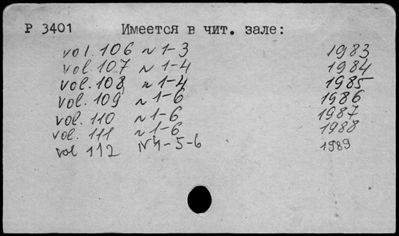 Р 3401 Имеется в чит. зале:
vol. 106 N 1-3 1983
vol. 107 N 1-4 1984
vol. 108 N 1-4 1985
vol. 109 N 1-6 1986
vol. 110 N 1-6 1987
vol. 111 N 1-6 1988
vol 112 N 4-5-6 1989